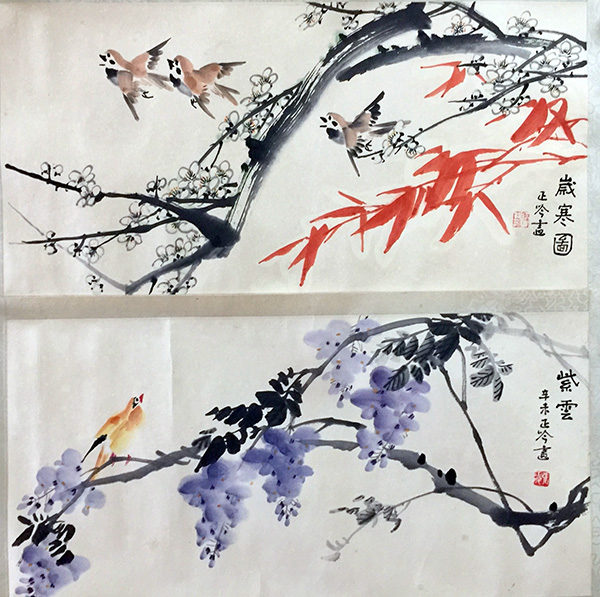 歲寒圖
正岑畫
紫雲
辛未正岑畫